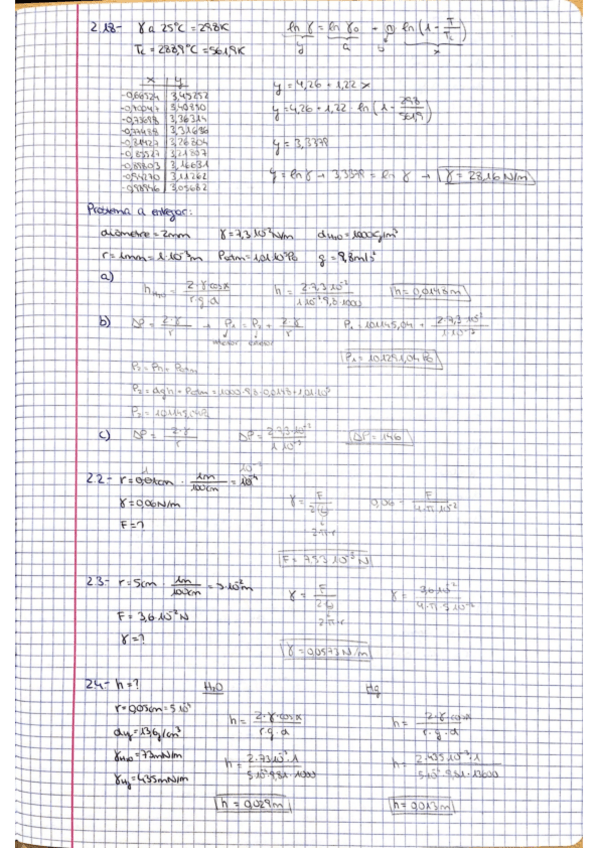 2.18- γ a 25°C = 298K
ln γ = ln γ0 + n ln (1 - T/Tc)
y a b x
Tc = 288,9°C = 561,9K
x y
-0,66524 3,45252
-0,70047 3,40890
-0,73698 3,36314
-0,77488 3,31686
-0,81427 3,26804
-0,85527 3,21807
-0,89803 3,16631
-0,94270 3,11262
-0,98946 3,05682
y = 4,26 + 1,22 x
y = 4,26 + 1,22 · ln (1 - 298/561,9)
y = 3,3378
y = ln γ → 3,3378 = ln γ → γ = 28,16 N/m
Problema a entregar:
diametre = 2mm γ = 7,3·10⁻² N/m dH2O = 1000
r = 1mm = 1·10⁻³m Patm = 1,01·10⁵Pa g = 9,8m/s²
a)
hH2O = 2·γ·cosα / r·g·d
h = 2·7,3·10⁻² / 1·10⁻³·9,8·1000
h = 0,0148m
b) ΔP = 2·γ / r → P1 = P2 + 2·γ / r
P1 = 101145,04 + 2·7,3·10⁻² / 1·10⁻³
P1 = 101291,04 Pa
P2 = Ph + Patm
P2 = dgh + Patm = 1000·9,8·0,0148 + 1,01·10⁵
P2 = 101145,04
c) ΔP = 2·γ / r ΔP = 2·7,3·10⁻² / 1·10⁻³ ΔP = 146
2.2- r = · 1m / 100cm =
γ = 0,06N/m
F = ?
γ = F / 2·l
2πr
0,06 = F / 4·π·10⁻²
F = 7,53·10⁻³ N
2.3- r = 5cm · 1m / 100cm = 5·10⁻²m
F = 3,6·10⁻²N
γ = ?
γ = F / 2·l
2π·r
γ = 3,6·10⁻² / 4·π·5·10⁻²
γ = 0,0573 N/m
2.4- h = ? H2O Hg
r = 0,05cm = 5·10⁻⁴
dHg = 13,6g/cm³
γH2O = 73mN/m
γHg = 435mN/m
h = 2·γ·cosα / r·g·d
h = 2·73·10⁻³·1 / 5·10⁻⁴·9,81·1000
h = 0,029m
h = 2·γ·cosα / r·g·d
h = 2·435·10⁻³·1 / 5·10⁻⁴·9,81·13600
h = 0,013m